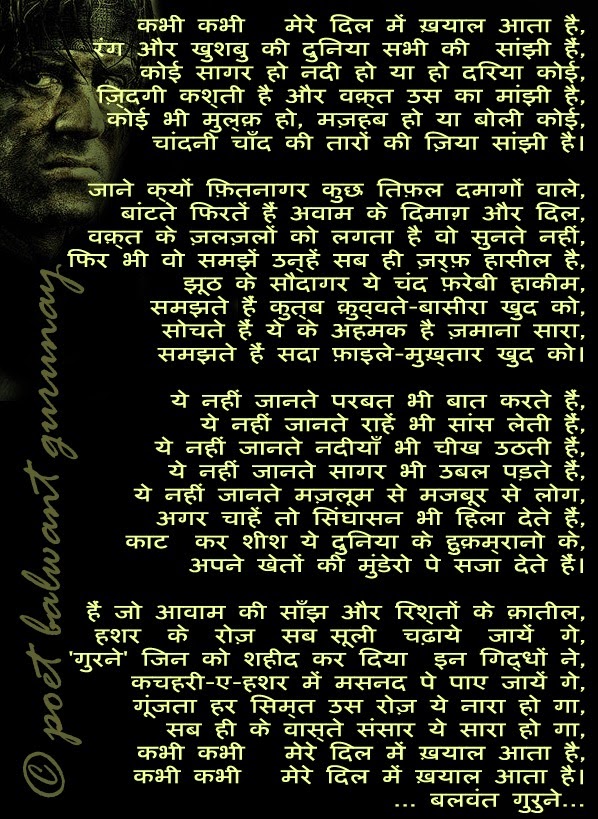 कभी कभी मेरे दिल में ख़याल आता है,
रंग और खुशबु की दुनिया सभी की सांझी हैं,
कोई सागर हो नदी हो या हो दरिया कोई,
ज़िदगी कश्ती है और वक़्त उस का मांझी है,
कोई भी मुल्क़ हो, मज़हब हो या बोली कोई,
चांदनी चाँद की तारों की ज़िया सांझी है।
जाने क्यों फ़ितनागर कुछ तिफ़ल दमागों वाले,
बांटते फिरतें हैं अवाम के दिमाग़ और दिल,
वक़्त के ज़लज़लों को लगता है वो सुनते नहीं,
फिर भी वो समझें उन्हें सब ही ज़र्फ़ हासील है,
झूठ के सौदागर ये चंद फ़रेबी हाकीम,
समझते हैं कुत्ब क़ुव्वते-बासीरा खुद को,
सोचते हैं ये के अहमक है ज़माना सारा,
समझते हैं सदा फ़ाइले-मुख़्तार खुद को।
ये नहीं जानते परबत भी बात करते हैं,
ये नहीं जानते राहें भी सांस लेती हैं,
ये नहीं जानते नदीयाँ भी चीख उठती हैं,
ये नहीं जानते सागर भी उबल पड़ते हैं,
ये नहीं जानते मज़लूम से मजबूर से लोग,
अगर चाहें तो सिंघासन भी हिला देते हैं,
काट कर शीश ये दुनिया के हुक़म्रानो के,
अपने खेतों की मुंडेरो पे सजा देते हैं।
हैं जो आवाम की साँझ और रिश्तों के क़ातील,
हशर के रोज़ सब सूली चढ़ाये जायें गे,
'गुरने' जिन को शहीद कर दिया इन गिद्धों ने,
कचहरी-ए-हशर में मसनद पे पाए जायें गे,
गूंजता हर सिम्त उस रोज़ ये नारा हो गा,
सब ही के वास्ते संसार ये सारा हो गा,
कभी कभी मेरे दिल में ख़याल आता है,
कभी कभी मेरे दिल में ख़याल आता है।
... बलवंत गुरुने...
© poet balwant gurunay